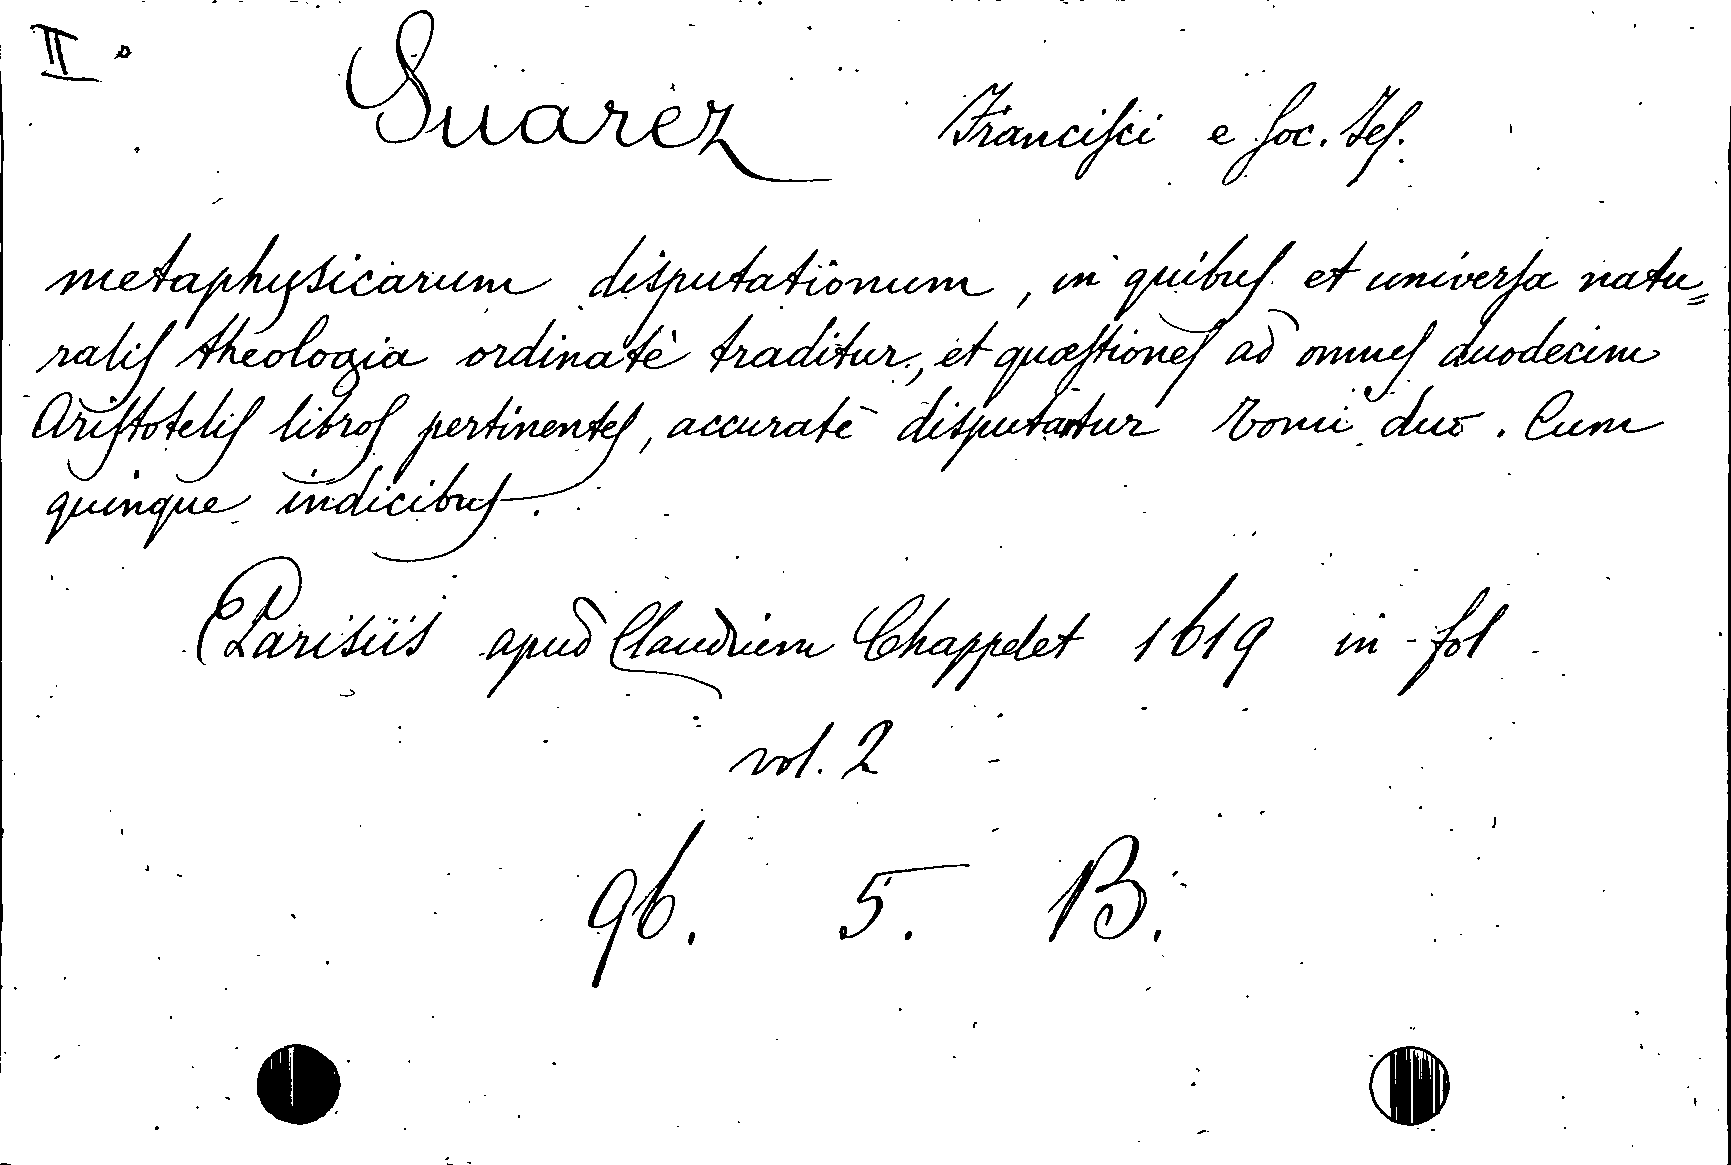 II°
Suarez Francisci e Soc. Jes.
metaphysicarum disputationum, in quibus et universa natu=
ralis theologia ordinatè traditur, et quæstiones ad omnes duodecim
Aristotelis libros pertinentes, accuratè disputantur Tomi duo. Cum
quinque indicibus.
Parisiis apud Claudium Chappelet 1619 in-fol
vol. 2
96. 5. B.